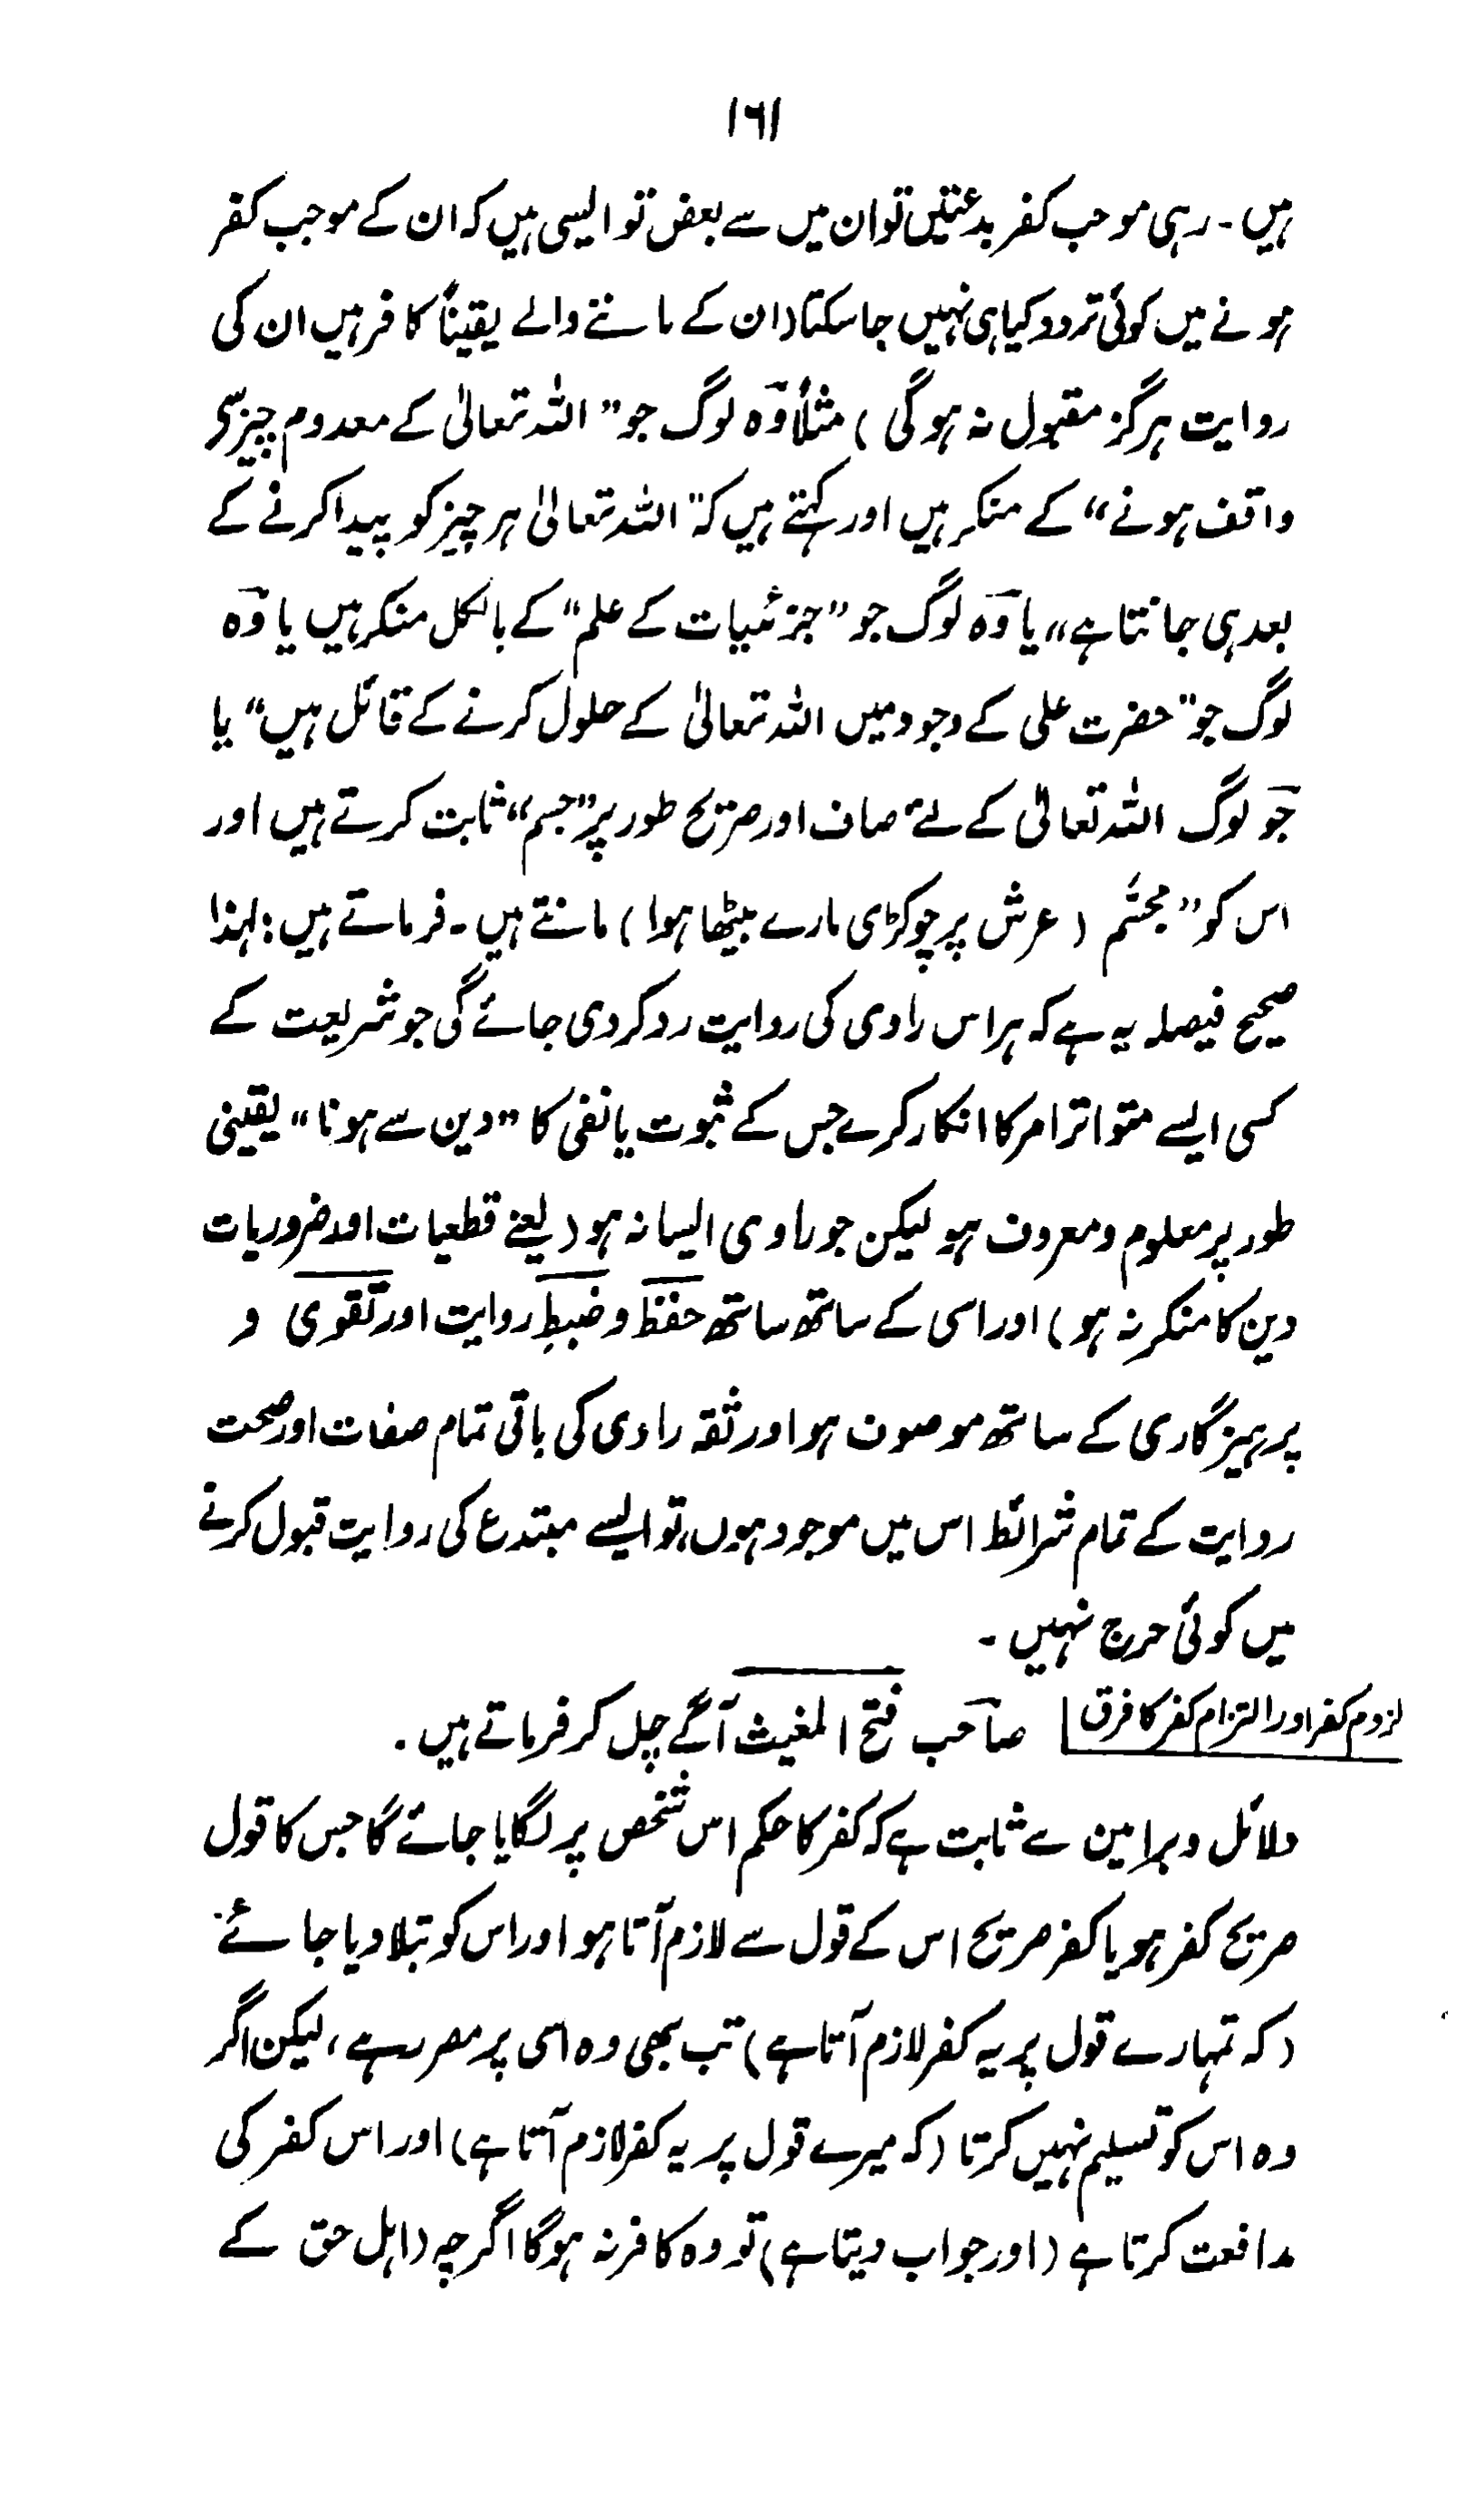 ۱۶۱
ہیں۔ رہی موجب کفر بدعتیں تو ان میں سے بعض تو ایسی ہیں کہ ان کے موجب کفر
ہونے میں کوئی تردد کیا ہی نہیں جا سکتا (ان کے ماننے والے یقیناً کافر ہیں ان کی
روایت ہرگز مقبول نہ ہوگی) مثلاً وہ لوگ جو ”اللہ تعالیٰ کے معدوم چیز سے
واقف ہونے“ کے منکر ہیں اور کہتے ہیں کہ ”اللہ تعالیٰ ہر چیز کو پیدا کرنے کے
بعد ہی جانتا ہے“ یا وہ لوگ جو ”جزئیات کے علم“ کے بالکل منکر ہیں یا وہ
لوگ جو ”حضرت علی کے وجود میں اللہ تعالیٰ کے حلول کرنے کے قائل ہیں“ یا
جو لوگ اللہ تعالیٰ کے لئے صاف اور صریح طور پر ”جسم“ ثابت کرتے ہیں اور
اس کو ”مجسّم (عرش پر چوکڑی مارے بیٹھا ہوا) مانتے ہیں۔ فرماتے ہیں: لہذا
صحیح فیصلہ یہ ہے کہ ہر اس راوی کی روایت رد کر دی جائے گی جو شریعت کے
کسی ایسے متواتر امر کا انکار کرے جس کے ثبوت یا نفی کا ”دین سے ہونا“ یقینی
طور پر معلوم و معروف ہو لیکن جو راوی ایسا نہ ہو (یعنے قطعیات اور ضروریات
دین کا منکر نہ ہو) اور اسی کے ساتھ ساتھ حفظ و ضبطِ روایت اور تقوی و
پرہیزگاری کے ساتھ موصوف ہو اور ثقہ راوی کی باقی تمام صفات اور صحت
روایت کے تمام شرائط اس میں موجود ہوں، تو ایسے مبتدع کی روایت قبول کرنے
میں کوئی حرج نہیں۔
لزوم کفر اور التزام کفر کا فرق صاحب فتح المغیث آگے چل کر فرماتے ہیں۔
دلائل و براہین سے ثابت ہے کہ کفر کا حکم اس شخص پر لگایا جائے گا جس کا قول
صریح کفر ہو یا کفر صریح اس کے قول سے لازم آتا ہو اور اس کو بتلا دیا جائے
(کہ تمہارے قول پر یہ کفر لازم آتا ہے) تب بھی وہ اسی پر مصر رہے، لیکن اگر
وہ اس کو تسلیم نہیں کرتا (کہ میرے قول پر یہ کفر لازم آتا ہے) اور اس کفر کی
مدافعت کرتا ہے (اور جواب دیتا ہے) تو وہ کافر نہ ہوگا اگرچہ (اہل حق کے